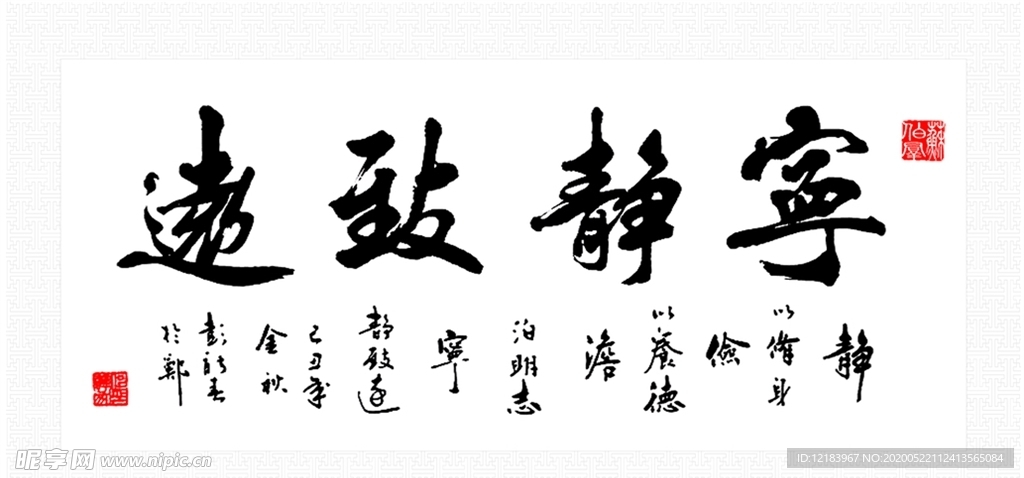 寧靜致遠
靜
以脩身
儉
以養德
澹
泊明志
寧
靜致遠
己丑年
金秋
於鄭
昵享网 www.nipic.cn
ID:12183967 NO:20200522112413565084